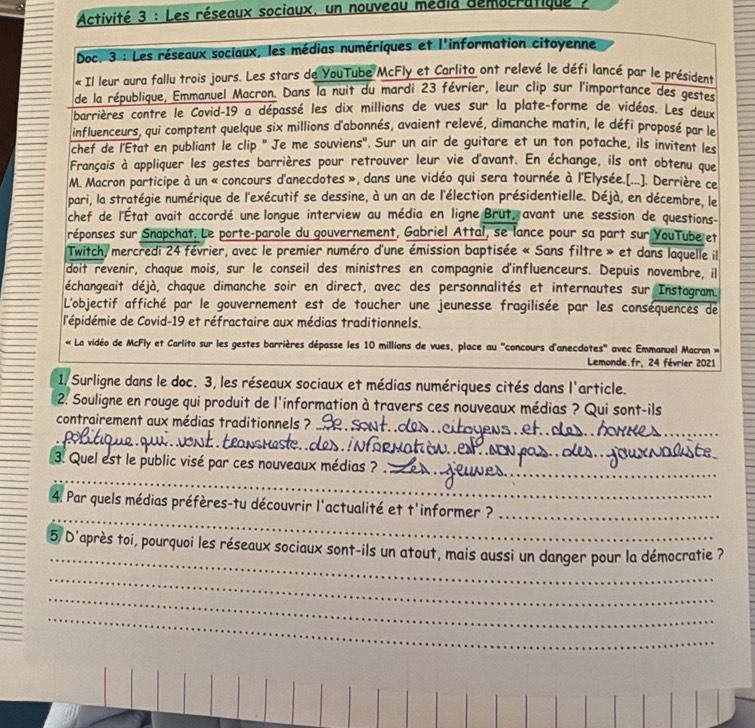 Activité 3 : Les réseaux sociaux, un nouveau média démocratique ?
Doc. 3 : Les réseaux sociaux, les médias numériques et l'information citoyenne
« Il leur aura fallu trois jours. Les stars de YouTube McFly et Carlito ont relevé le défi lancé par le président
de la république, Emmanuel Macron. Dans la nuit du mardi 23 février, leur clip sur l'importance des gestes
barrières contre le Covid-19 a dépassé les dix millions de vues sur la plate-forme de vidéos. Les deux
influenceurs, qui comptent quelque six millions d'abonnés, avaient relevé, dimanche matin, le défi proposé par le
chef de l'Etat en publiant le clip " Je me souviens". Sur un air de guitare et un ton potache, ils invitent les
Français à appliquer les gestes barrières pour retrouver leur vie d'avant. En échange, ils ont obtenu que
M. Macron participe à un « concours d'anecdotes », dans une vidéo qui sera tournée à l'Elysée.[...]. Derrière ce
pari, la stratégie numérique de l'exécutif se dessine, à un an de l'élection présidentielle. Déjà, en décembre, le
chef de l'État avait accordé une longue interview au média en ligne Brut, avant une session de questions-
réponses sur Snapchat. Le porte-parole du gouvernement, Gabriel Attal, se lance pour sa part sur YouTube et
Twitch, mercredi 24 février, avec le premier numéro d'une émission baptisée « Sans filtre » et dans laquelle il
doit revenir, chaque mois, sur le conseil des ministres en compagnie d'influenceurs. Depuis novembre, il
échangeait déjà, chaque dimanche soir en direct, avec des personnalités et internautes sur Instagram.
L'objectif affiché par le gouvernement est de toucher une jeunesse fragilisée par les conséquences de
l'épidémie de Covid-19 et réfractaire aux médias traditionnels.
« La vidéo de McFly et Carlito sur les gestes barrières dépasse les 10 millions de vues, place au "concours d'anecdotes" avec Emmanuel Macron »
Lemonde.fr, 24 février 2021
1. Surligne dans le doc. 3, les réseaux sociaux et médias numériques cités dans l'article.
2. Souligne en rouge qui produit de l'information à travers ces nouveaux médias ? Qui sont-ils
contrairement aux médias traditionnels ? Se sont des citoyens et des hommes
politique qui vont transmeste des information est non pas des journaliste
3. Quel est le public visé par ces nouveaux médias ? Les jeunes
4. Par quels médias préfères-tu découvrir l'actualité et t'informer ?
5. D'après toi, pourquoi les réseaux sociaux sont-ils un atout, mais aussi un danger pour la démocratie ?